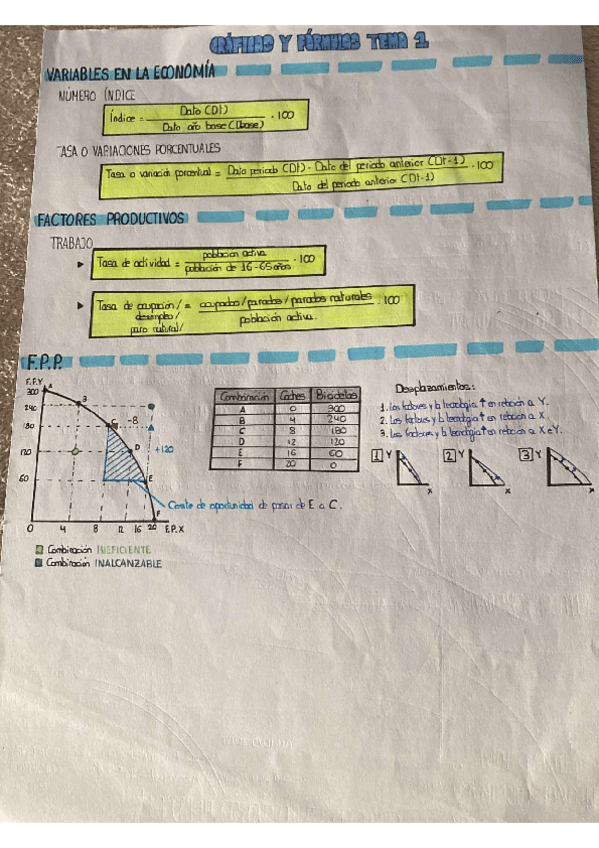 GRÁFICAS Y FÓRMULAS TEMA 1
VARIABLES EN LA ECONOMÍA
NÚMERO ÍNDICE
Índice = Dato (Dt) / Dato año base (Dbase) · 100
TASA O VARIACIONES PORCENTUALES
Tasa o variación porcentual = Dato periodo (Dt) - Dato del periodo anterior (Dt-1) / Dato del periodo anterior (Dt-1) · 100
FACTORES PRODUCTIVOS
TRABAJO
Tasa de actividad = población activa / población de 16-65 años · 100
Tasa de ocupación/ desempleo/ paro natural/ = ocupados/parados/parados naturales / población activa. · 100
F.P.P.
F.P.Y
300 A
240 B
180 C -8
120 D +120
60 E
F
0 4 8 12 16 20 F.P.X
Coste de oportunidad de pasar de E a C.
Combinación INEFICIENTE
Combinación INALCANZABLE
Combinación Coches Bicicletas
A 0 300
B 4 240
C 8 180
D 12 120
E 16 60
F 20 0
Desplazamientos:
1. Los factores y la tecnología ↑ en relación a Y.
2. Los factores y la tecnología ↑ en relación a X.
3. Los factores y la tecnología ↑ en relación a X e Y.
1 Y X
2 Y X
3 Y X